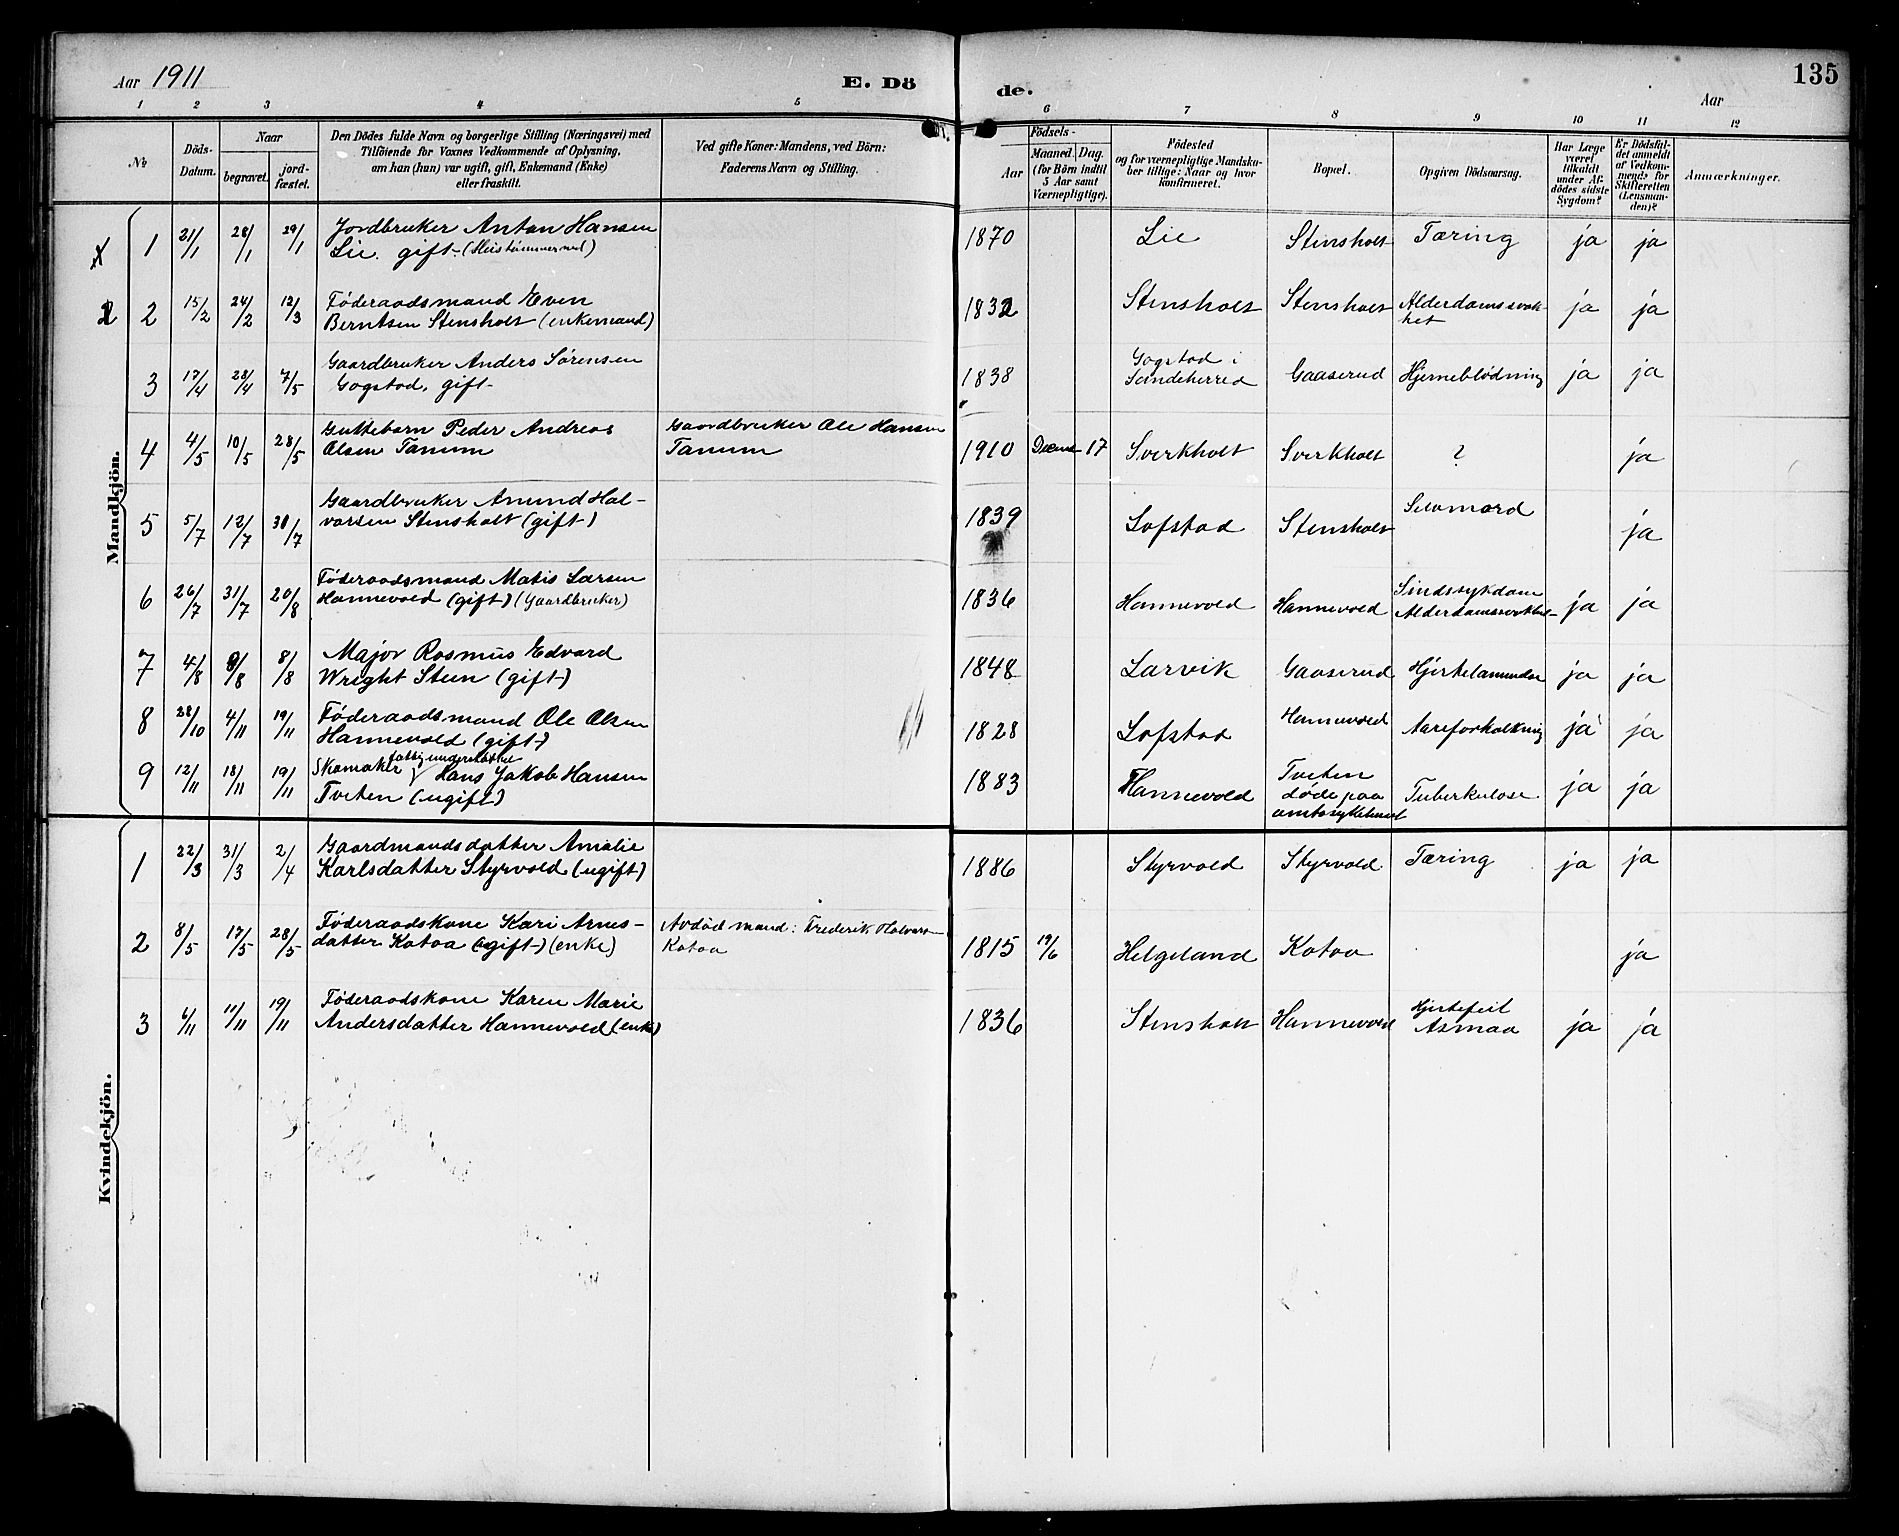 Aar 1911
E. Dö
de.
Aar
135
1 2 3 4 5 6 7 8 9 10 11 12
No
Döds-
Datum.
Naar
begravet.
jord-
fæstet.
Den Dödes fulde Navn og borgerlige Stilling (Næringsvei) med
Tilföiende for Voxnes Vedkommende af Oplysning,
om han (hun) var ugift, gift, Enkemand (Enke)
eller fraskilt.
Ved gifte Koner: Mandens, ved Börn:
Faderens Navn og Stilling.
Födsels-
Aar
Maaned. Dag.
(for Börn indtil
5 Aar samt
Værnepligtige).
Födested
og for værnepligtige Mandsku-
ber tillige: Naar og hvor
konfirmeret.
Bopæl.
Opgiven Dödsaarsag.
Har Læge
været
tilkaldt
under Af-
dödes sidste
Sygdom?
Er Dödsfal-
det anmeldt
af Vedkom-
mende for
Skifteretten
(Lensman-
den)?
Anmærkninger.
Mandkjön.
1 21/1 28/1 29/1 Jordbruker Anton Hansen
Lie. gift. 1870 Lie Stensholt Tæring ja ja
2 15/2 24/2 12/3 Føderaadsmand Even
Berntsen Stensholt (enkemand) 1832 Stensholt Stensholt Alderdomssvak-
het ja ja
3 17/4 28/4 7/5 Gaardbruker Anders Sørensen
Gogstad, gift. 1838 Gogstad i
Sandeherred Gaaserud Hjerneblødning ja ja
4 4/5 10/5 28/5 Guttebarn Peder Andreas
Olsen Tanum Gaardbruker Ole Hansen
Tanum 1910 17 Sverkholt Sverkholt ? ja
5 5/7 12/7 30/7 Gaardbruker Anund Hal-
vorsen Stensholt (gift) 1839 Lofstad Stensholt Selvmord ja
6 26/7 31/7 20/8 Føderaadsmand Matis Larsen
Hannevold (gift) (Gaardbruker) 1836 Hannevold Hannevold Sindssykdom
ja ja
7 4/8 8/8 8/8 Major Rasmus Edvard
Wright Steen (gift) 1848 Larvik Gaaserud ja ja
8 28/10 4/11 19/11 Føderaadsmand Ole Olsen
Hannevold (gift) 1828 Lofstad Hannevold Aareforkalkning ja ja
9 12/11 18/11 19/11 Skomaker fattigunderstøttet Hans Jakob Hansen
Tveten (ugift) 1883 Hannevold Tveten
døde paa
amtssykehuset Tuberkulose ja ja
Kvindekjön.
1 22/3 31/3 2/4 Gaardmandsdatter Amalie
Karlsdatter Styrvold (ugift) 1886 Styrvold Styrvold Tæring ja ja
2 8/5 17/5 28/5 Føderaadskone Kari Arnes-
datter Kotoa (gift) (enke) Avdød mand: Frederik Halvors-
Kotoa 1815 19/6 Helgeland Kotoa ja
3 6/11 11/11 19/11 Føderaadskone Karen Marie
Andersdatter Hannevold (enke) 1836 Stensholt Hannevold Hjertefeil
Asmaa ja ja